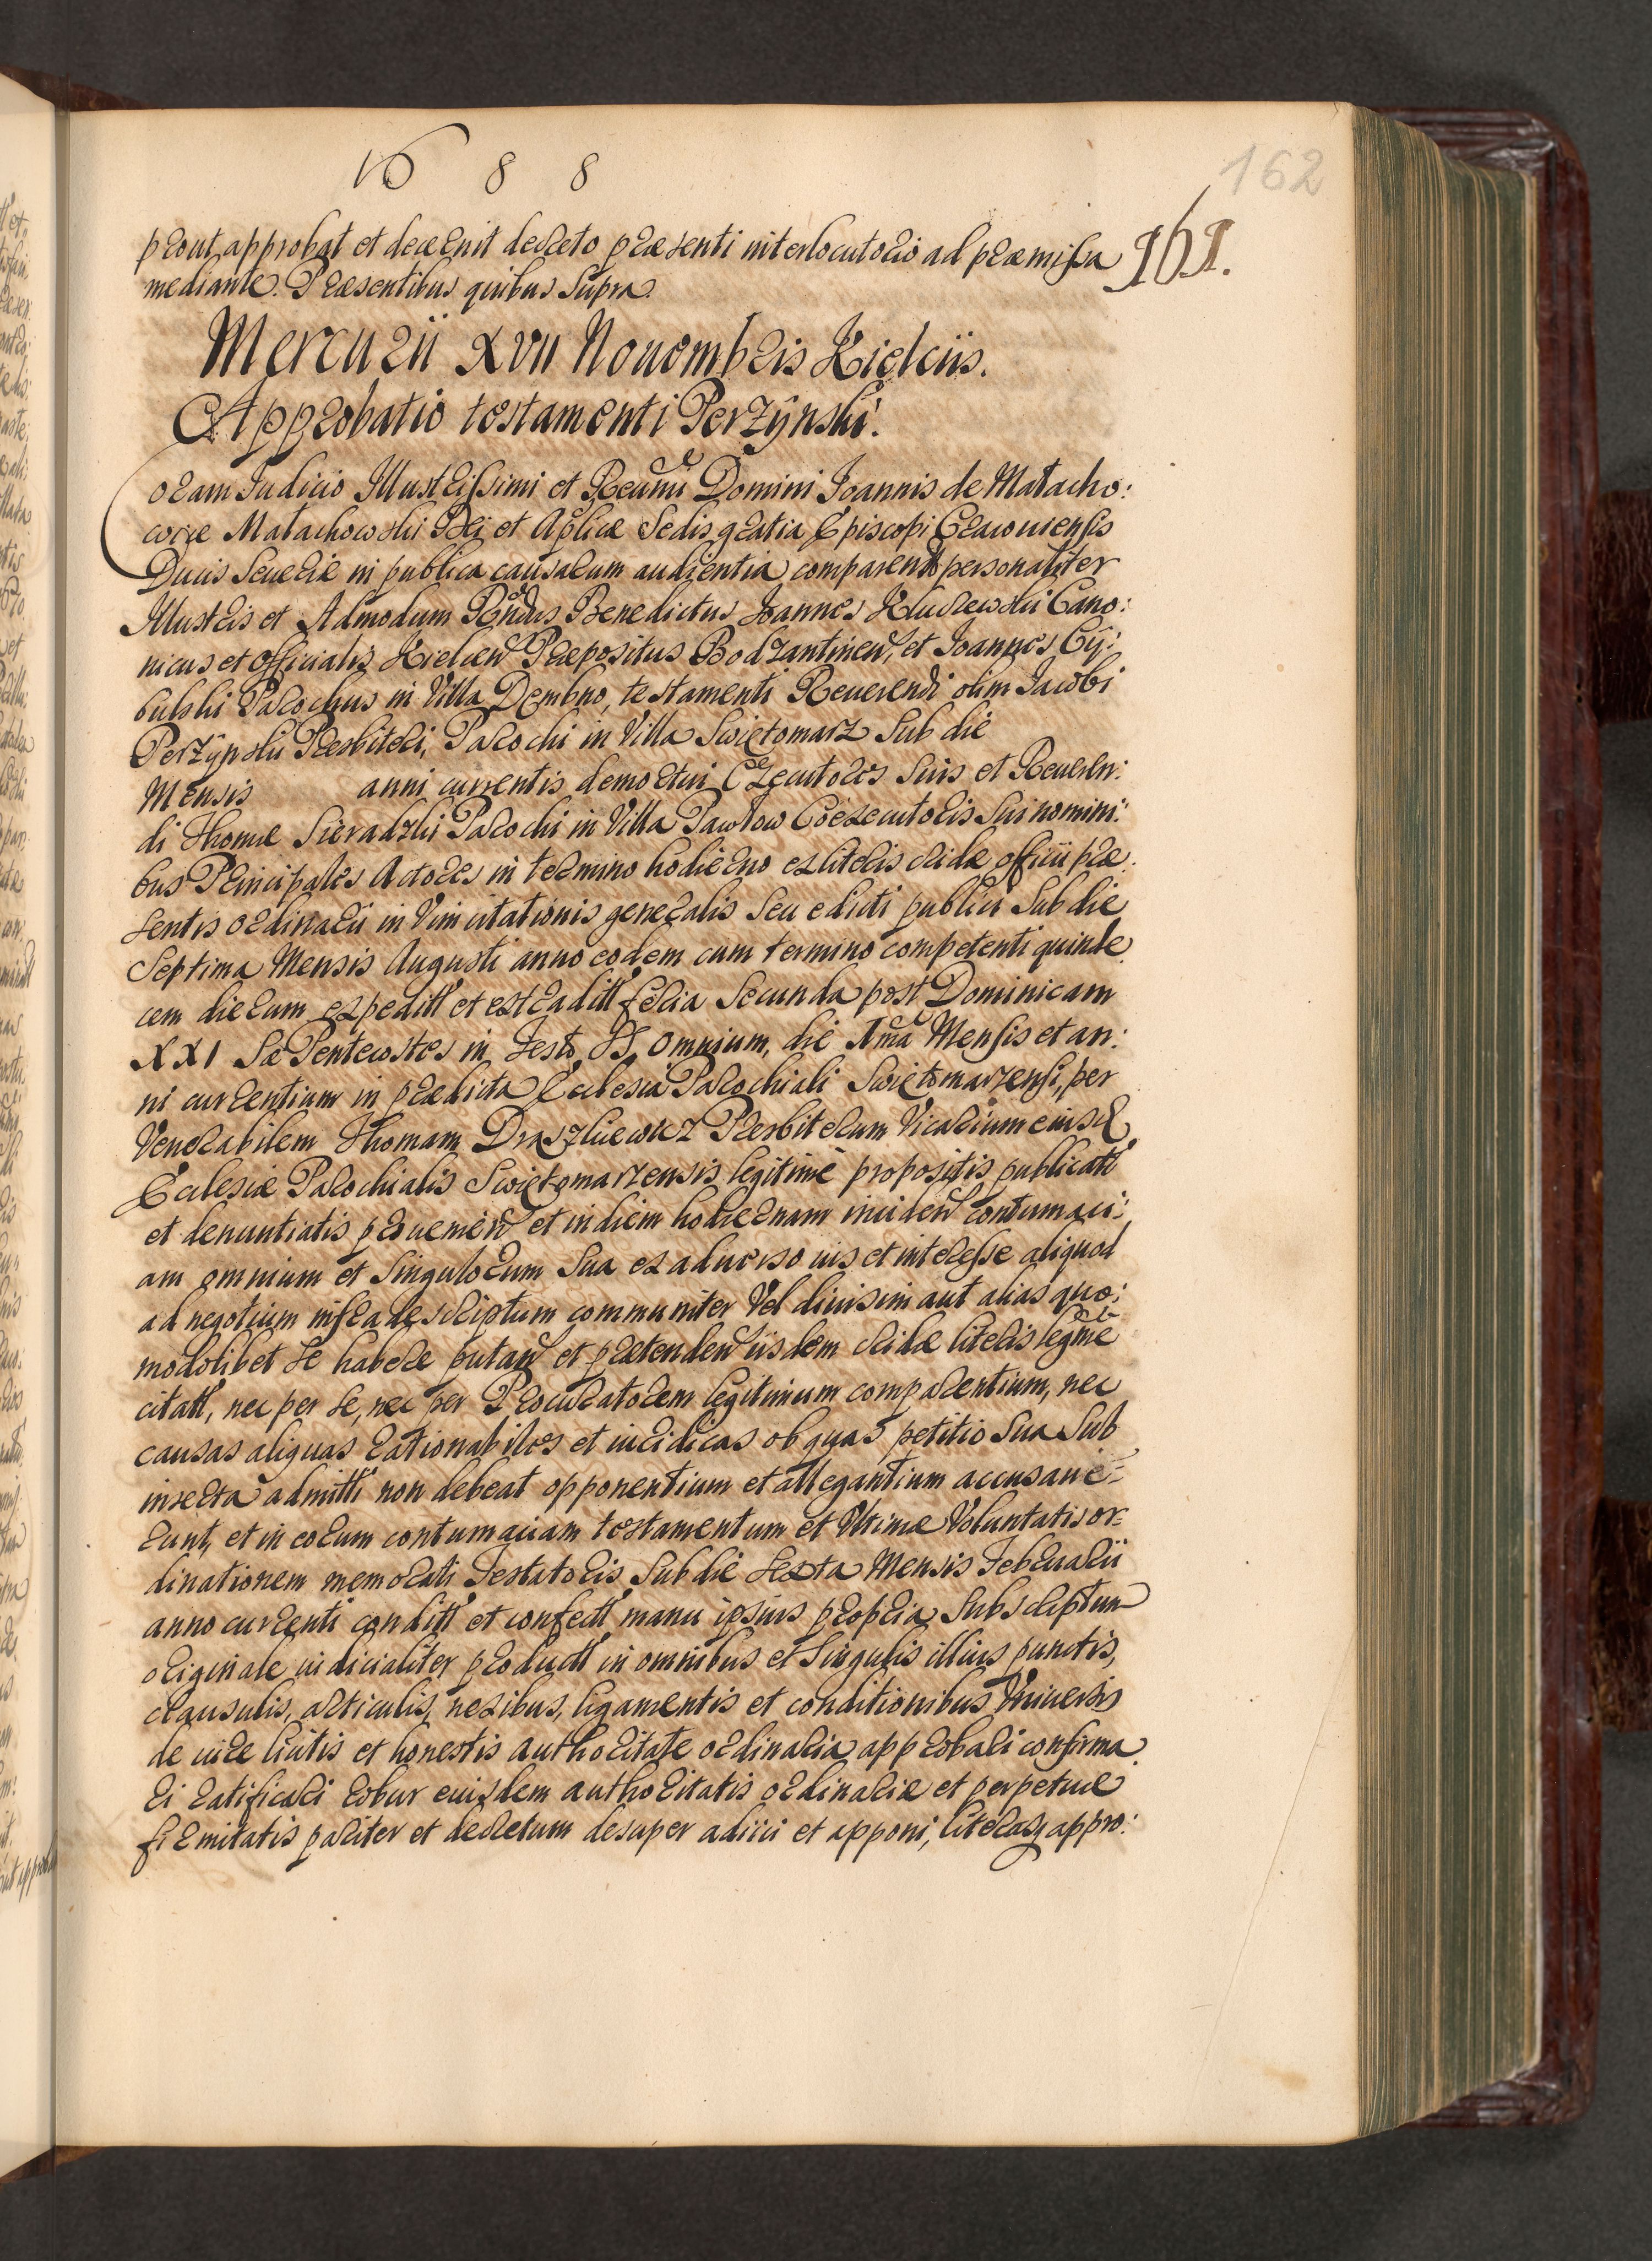 1688
162
prout approbat et decernit decreto præsenti interlocutorio ad præmissa
161.
mediante. Præsentibus quibus Supra.
Mercurii XVII Nouembris Kielciis.
Approbatio testamenti Perzÿnski.
Coram Iudicio Illustrissimi et Reumi Domini Ioannis de Małacho:
wice Małachowski Dei et Aplicæ Sedis gratia Episcopi Cracouiensis
Ducis Seueriæ in publica causarum audientia comparend personaliter
Illustris et Admodum Rndus Benedictus Joannes Kludzewski Cano:
nicus et Officialis Kielcen Præpositus Bodzantinen, et Joannes Cÿ:
bulski Parochus in Villa Dembno, testamenti Reuerendi olim Jacobi
Perzÿnski Presbiteri, Parochi in Villa Swiętomarz Sub die
Mensis anni currentis demortui Exequutores Suis et Reueren:
di Thomæ Sieradzki Parochi in Villa Pawłow Coexecutoris Sui nomini:
bus Principales Actores in termino hodierno ex literis cridæ officii præ
sentis ordinarii in Vim citationis generalis Seu edicti publici Sub die
Septima Mensis Augusti anno eodem cum termino competenti quinde
cem dierum expeditt et extraditt feria Secunda post Dominicam
XXI Sæ Pentecostes in Festo SS Omnium, die Ima Mensis et an:
ni currentium in prædicta Ecclesia Parochiali Swiętomarzensi, per
Venerabilem Thomam Draszkiewicz Presbiterum Vicarium eiusd
Ecclesiæ Parochialis Swiętomarzensis legitimè propositis publicatt
et denuntiatis proueniēn et in diem hodiernam inciden contumaci:
am omnium et Singulorum Sua ex aduerso ius et interesse aliquod
ad negotium infradescriptum communiter Vel diuisim aut alias quo:
modolibet Se habere putan et prætenden iisdem cridæ literis legme
citatt, nec per Se, nec per Procuratorem legitimum comparentium, nec
causas aliquas rationabiles et iuridicas ob quas petitio Sua Sub
inserta admitti non debeat opponentium et allegantium accusaue:
runt, et in eorum contumaciam testamentum et Vltimæ Voluntatis or:
dinationem memorati Testatoris Sub die Sexta Mensis Februarii
anno currenti conditt et confectt manu ipsius propria Subscriptum
originale iudicialiter productt in omnibus et Singulis illius punctis,
clausulis, articulis, nexibus, ligamentis et conditionibus Vniuersis
de iure licitis et honestis authoritate ordinaria approbari confirma
ri ratificari robur eiusdem authoritatis ordinariæ et perpetuæ
firmitatis pariter et decretum desuper adiici et apponi, literasq appro: